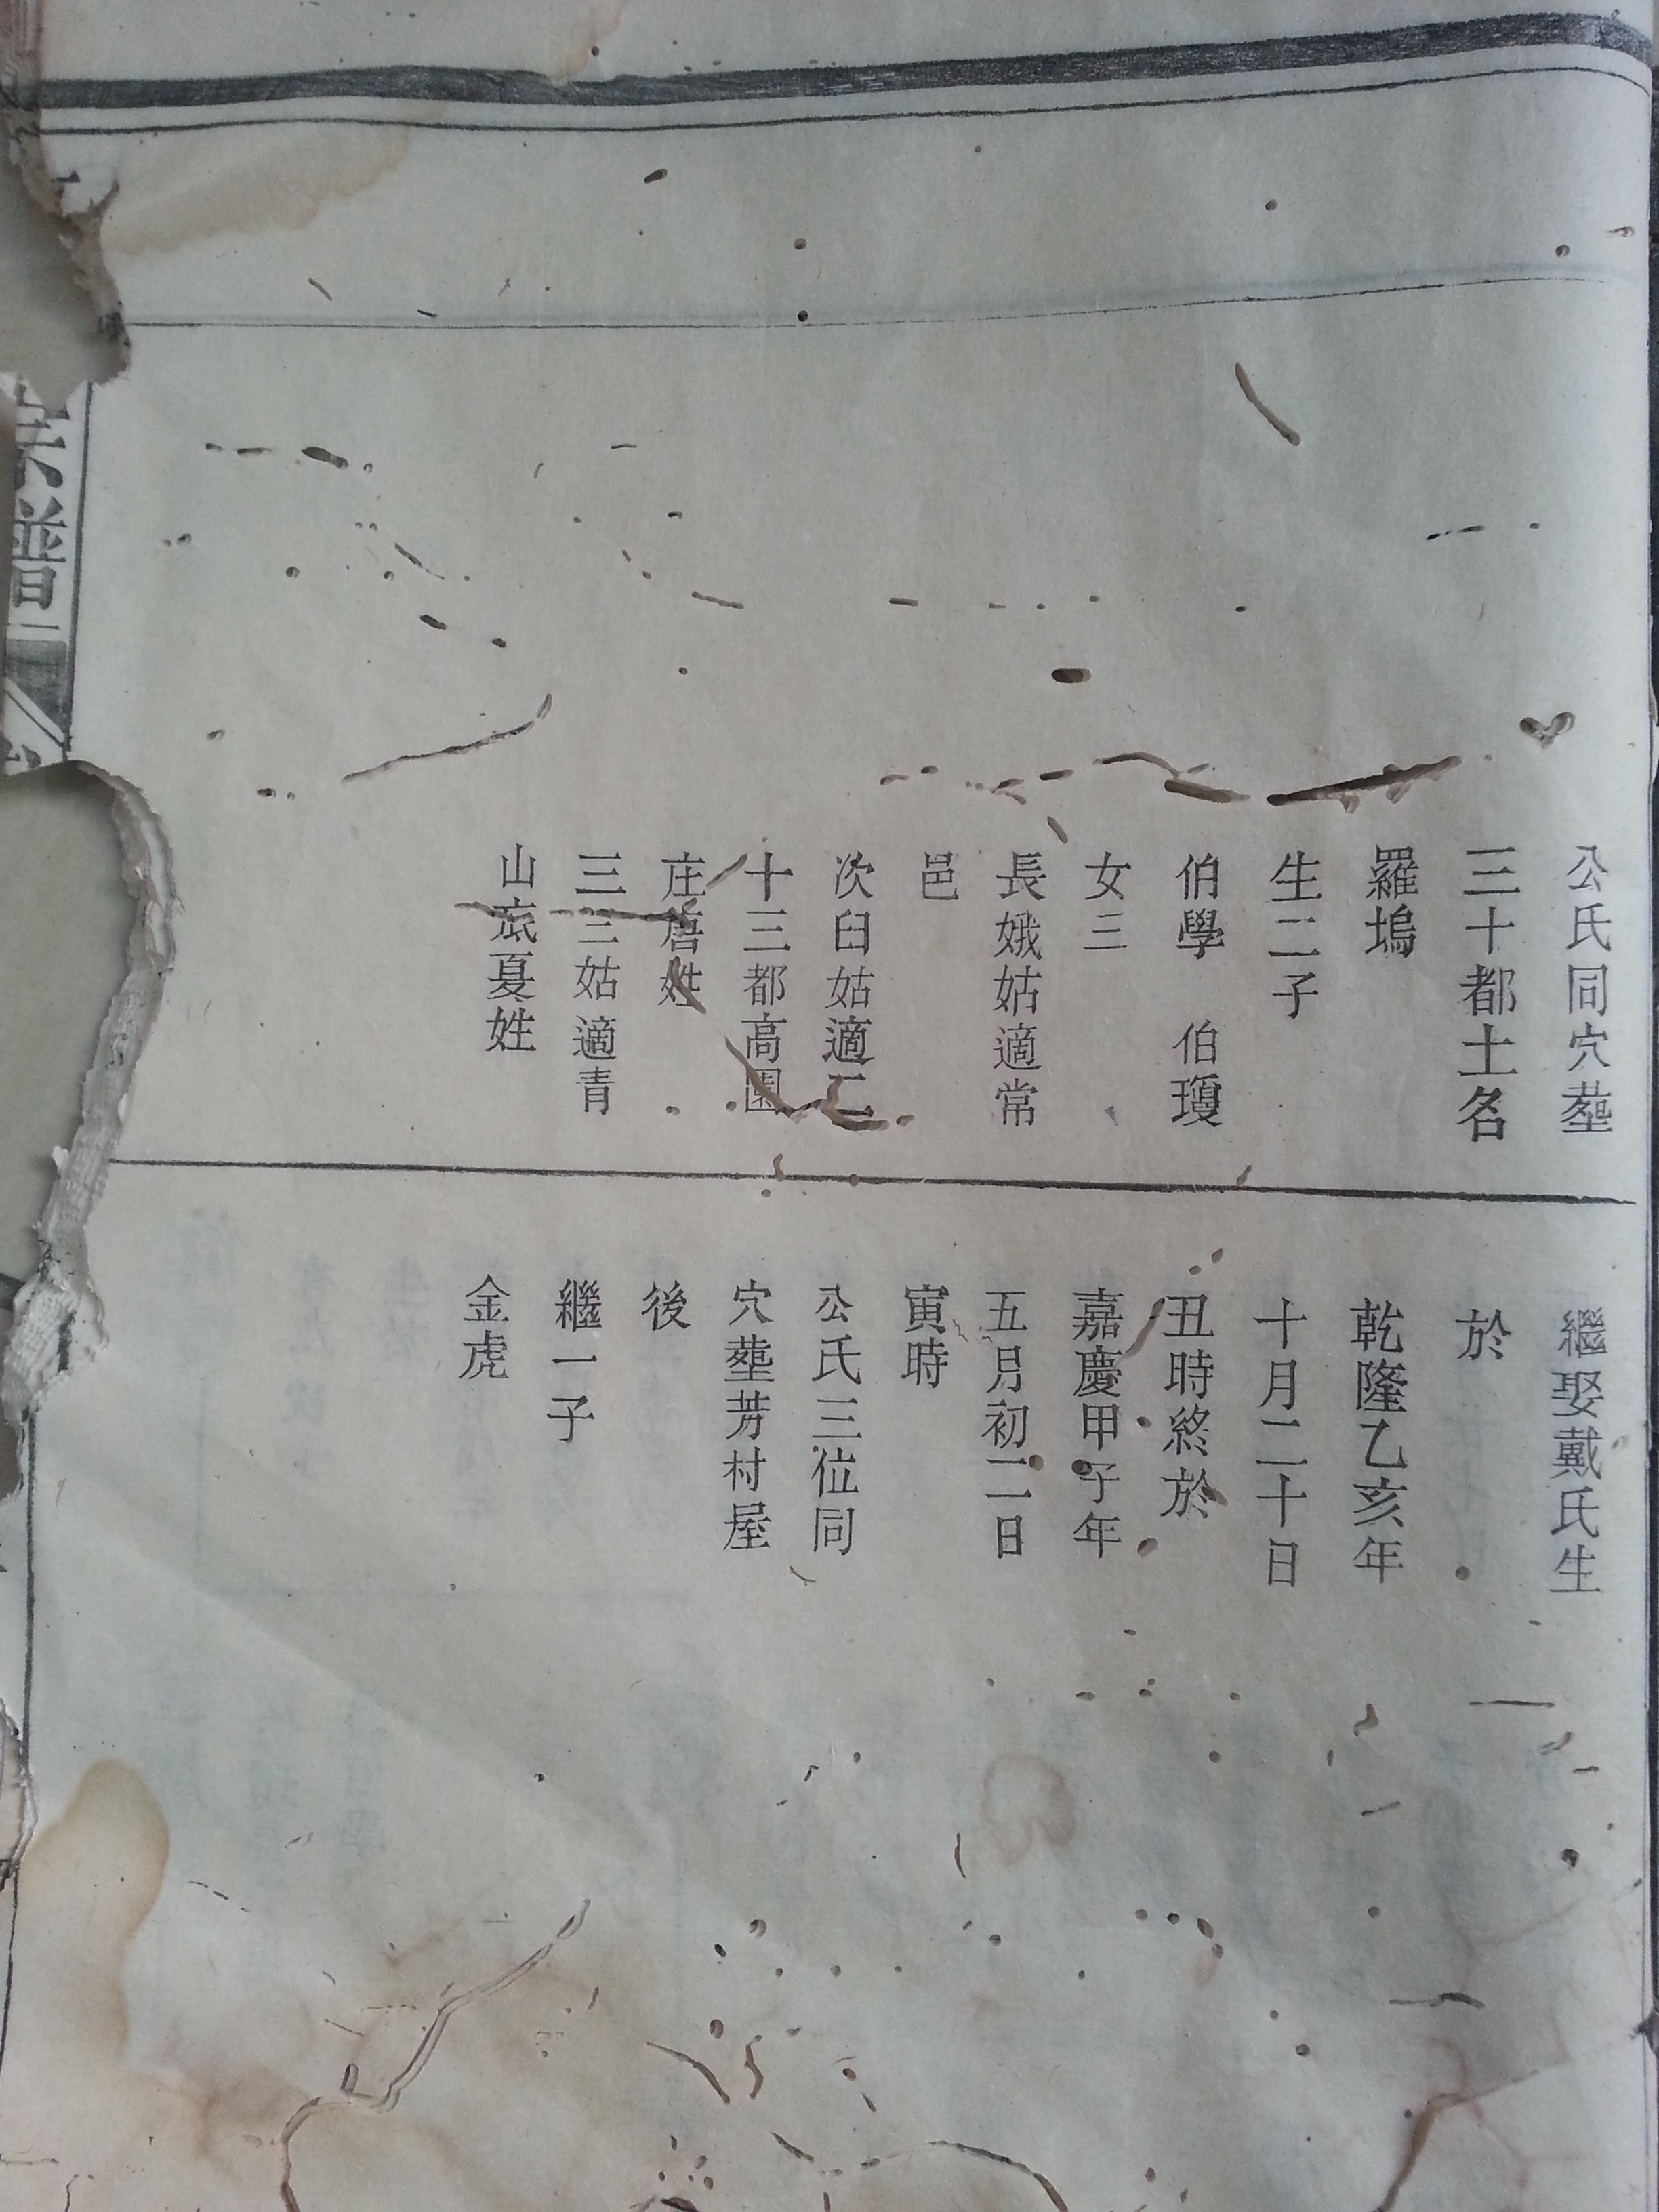 公氏同穴塟
三十都土名
羅塢
生二子
伯學　伯瓊
女三
長娥姑適常
邑
次臼姑適二
十三都高園
庄唐姓
三三姑適青
山底夏姓
繼娶戴氏生
於
乾隆乙亥年
十月二十日
丑時終於
嘉慶甲子年
五月初二日
寅時
公氏三位同
穴塟芳村屋
後
繼一子
金虎
宗譜